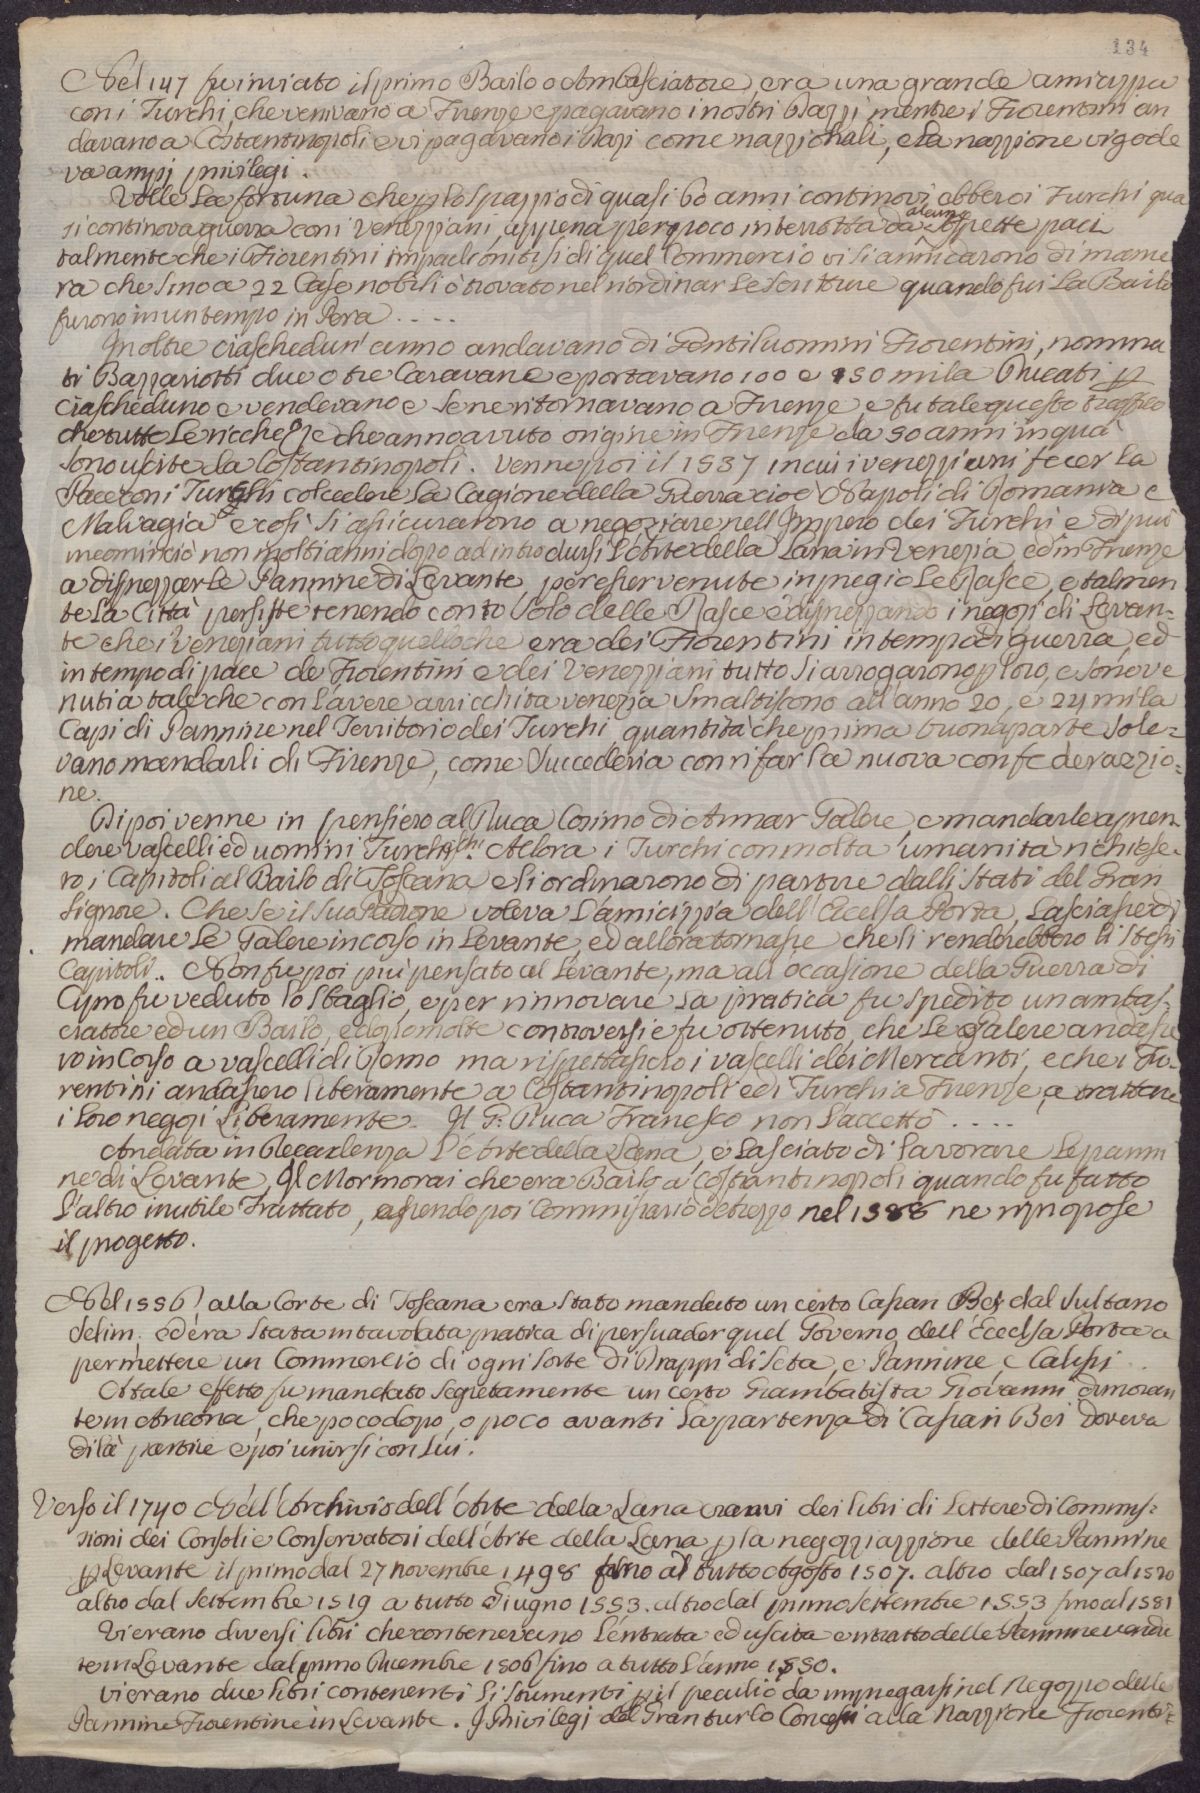 134
Nel 147 fu inviato il primo Bailo o Ambasciatore, era una grande amicizzia
con i Turchi, che venivano a Firenze e pagavano i nostri Dazzj, mentre i Fiorentini an
davano a Costantinopoli e vi pagavano i Dazi come nazzionali, e la nazzione vi gode
va ampj privilegi.
Volle la fortuna che p lo spazzio di quasi 60 anni continovi ebbero i Turchi qua
si continova guerra con i Venezziani, appena per poco interrotta da alcune sospette paci
talmente che i Fiorentini impadronitisi di quel Commercio vi si annidarono di manie
ra che sino a 22 Case nobili ò trovato nel riordinar le scritture quando fui la Bailo
furono in un tempo in Pera ....
Inoltre ciaschedun' anno andavano di Gentiluomini Fiorentini, nomina
ti Bazzariotti due o tre Caravane e portavano 100 e 150 mila Ducati p
ciascheduno e vendevano e se ne ritornavano a Firenze, e fu tale questo traffico
che tutte le ricchezze che anno avuto origine in Firenze da 50 anni in quà
sono uscite da Costantinopoli. Venne poi il 1537 in cui i venezziani fecer la
Pace con i Turchi col cedere la Cagione della Guerra cioè Napoli di Romania e
Malvagia e così si assicurarono a negoziare nell'Impero dei Turchi e di più
incominciò non molti anni dopo ad introdursi l'Arte della Lana in Venezia ed in Firenze
a disprezzar le Pannine di Levante, per esser venute in pregio le Rasce, e talmen
te la Città persiste tenendo conto solo delle Rasce e disprezzando i negozi di Levan-
te che i Veneziani tutto quello che era dei Fiorentini in tempo di guerra, ed
in tempo di pace de Fiorentini e dei Venezziani tutto si arrogarono p loro, e sono ve
nuti a tale che con l'avere arricchita venezia smaltiscono all'anno 20, e 24 mila
Capi di Pannine nel Territorio dei Turchi, quantità che prima buona parte sole-
vano mandarli di Firenze, come succederia con rifar la nuova confederazzio-
ne.
Di poi venne in pensiero al Duca Cosimo di Armar Galere, e mandarle a pren
dere vascelli ed uomini Turcheschi. Allora i Turchi con molta umanità richiese-
ro i Capitoli al Bailo di Toscana e li ordinarono di partire dalli Stati del Gran
Signore. Che se il suo Padrone voleva l'amicizzia dell'Eccelsa Porta, lasciasse di
mandare le Galere in corso in Levante, ed allora tornasse che li renderebbero li stessi
Capitoli.. Non fu poi più pensato al Levante, ma all'occasione della Guerra di
Cipro fu veduto lo sbaglio, e per rinnovare la pratica fu spedito un ambas-
ciatore ed un Bailo, e dopo molte controversie fu ottenuto, che le Galere andasse
ro in Corso a vascelli di Remo ma rispettassero i vascelli dei Mercanti, e che i Fio-
rentini andassero liberamente a Costantinopoli e di Turchi a Firenze, e trattare
i loro negozj liberamente. Il G: Duca Francesco non l'accettò ....
Andata in Decadenza l'Arte della Lana, e lasciato di lavorare le panni
ne di Levante, Il Mormorai che era Bailo a Costantinopoli quando fu fatto
l'altro inutile Trattato, essendo poi Commissario nel 1588 ne ripropose
il progetto.
Nel 1556 alla Corte di Toscana era stato mandato un certo Cassan Bei dal Sultano
Selim. ed era stata intavolata pratica di persuader quel Governo dell'Eccelsa Porta a
permettere un Commercio di ogni sorte di Drappi di seta, e Pannine, e
A tale effetto fu mandato segretamente un certo Giambatista Giovanni dimoran
te in Ancona, che poco dopo, o poco avanti la partenza di Cassan Bei doveva
di là partire e poi unirsi con lui.
Verso il 1740 Nell'Archivio dell'Arte della Lana eranvi dei libri di Lettere di Commis-
sioni dei Consoli e Conservatori dell'Arte della Lana p la negozziazzione delle Pannine
p Levante il primo dal 27 novembre 1498 fino al tutto Agosto 1507. altro dal 1507 al 1520
altro dal Settembre 1519 a tutto Giugno 1553. altro dal primo settembre 1553 fino al 1581
Vi erano diversi libri che contenevano l'entrata ed uscita e ritratto delle Pannine vendu
te in Levante dal primo Dicembre 1506 fino a tutto l'anno 1550.
Vi erano due libri contenenti li strumenti p il peculio da impiegarsi nel Negozzio delle
Pannine Fiorentine in Levante. I Privilegi del Gran turco Concessi alla Nazzione Fiorenti-